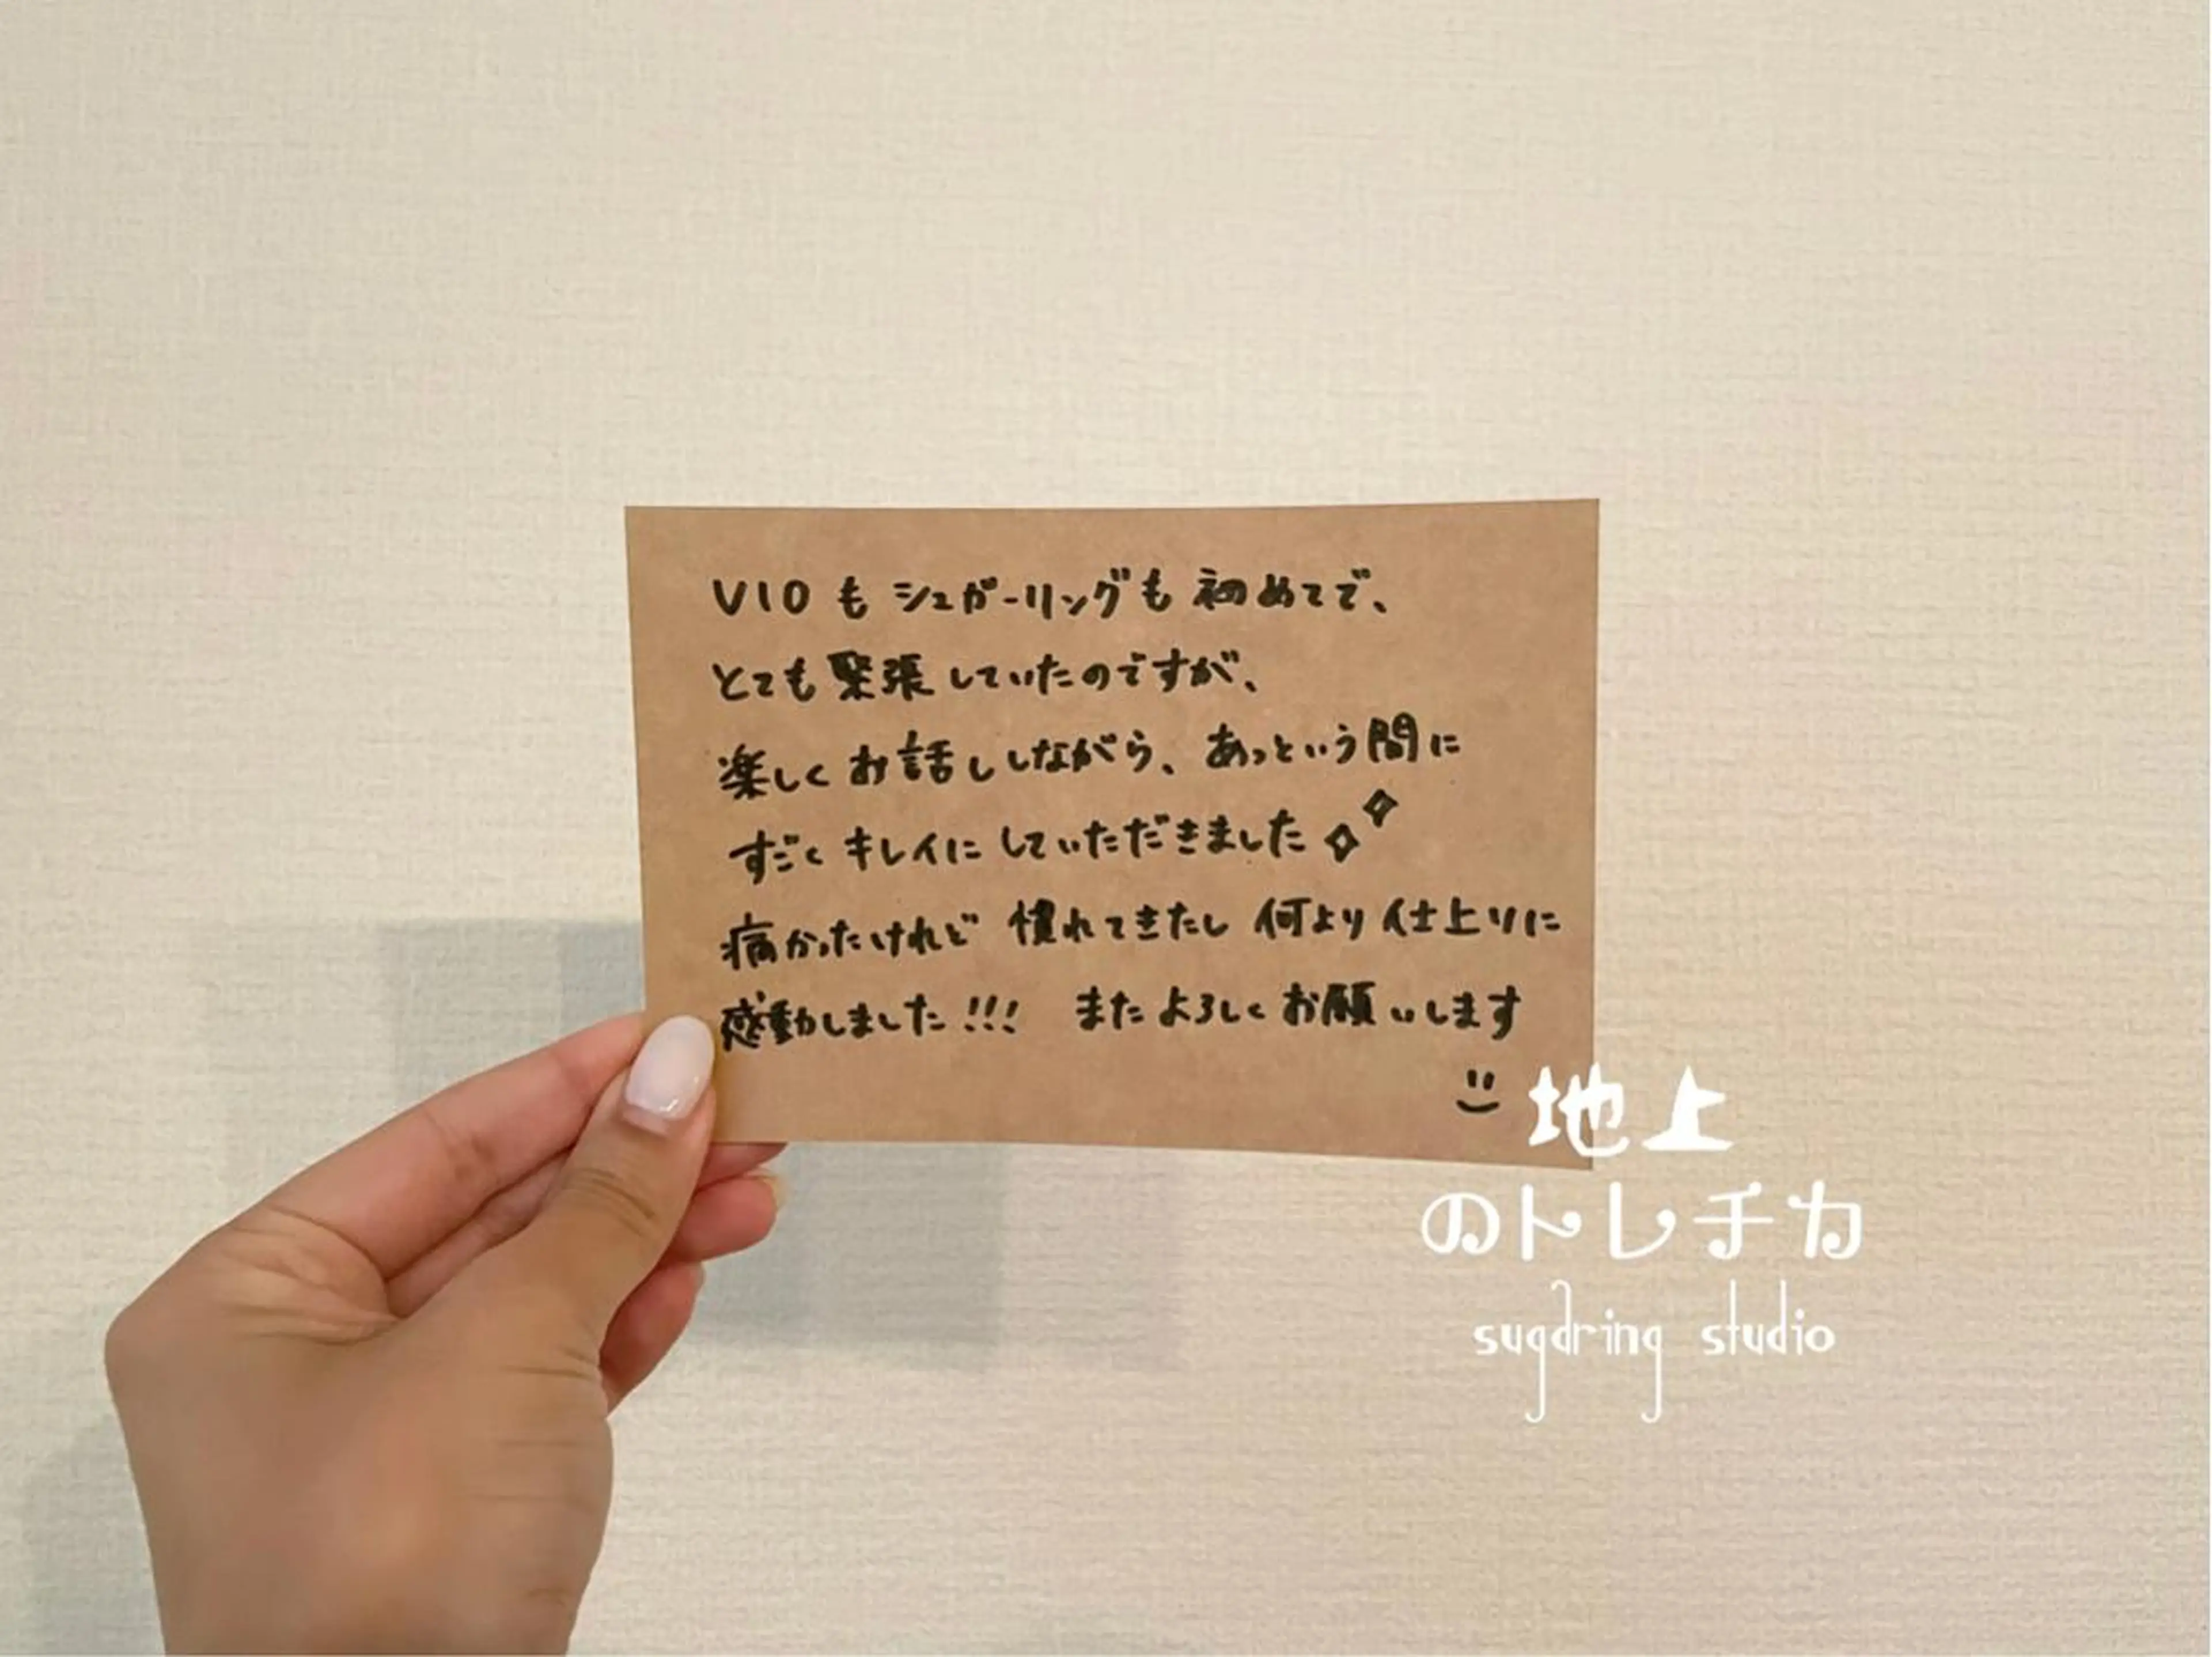 VIOもシュガーリングも初めてで、
とても緊張していたのですが、
楽しくお話ししながら、あっという間に
すごくキレイにしていただきました
痛かったけれど 慣れてきたし 何より仕上りに
感動しました!!! またよろしくお願いします
地上
のトレチカ
sugaring studio